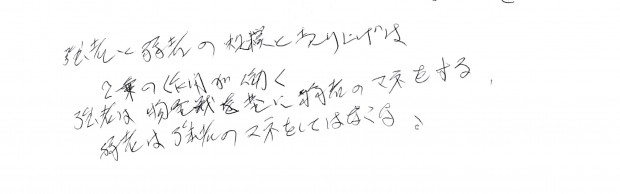 強者と弱者の規模と売り上げは
2乗の作用が働く
強者は物量戦を盾に弱者のマネをする、
弱者は強者のマネをしてはならない。